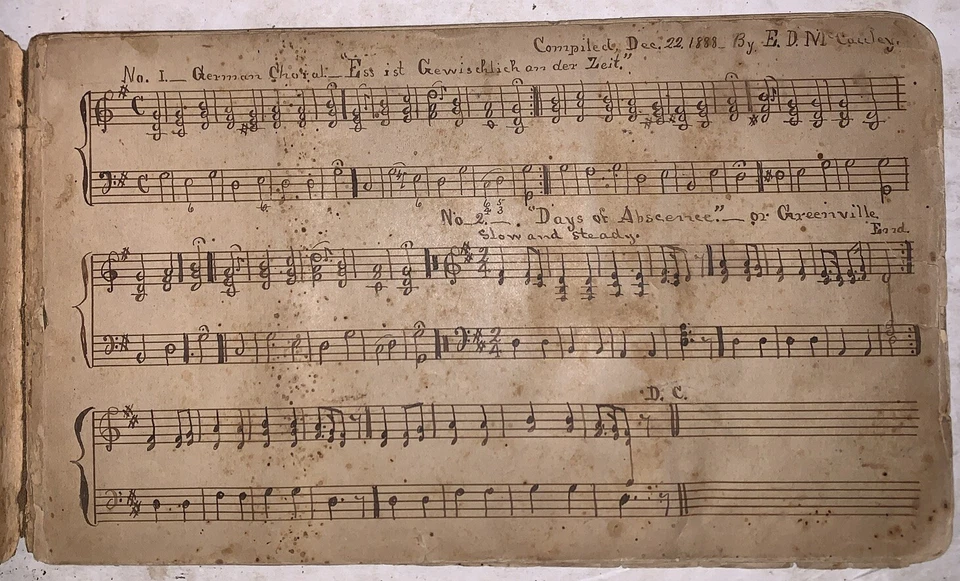 Compiled, Dec. 22, 1888_ By. E. D. McCauley.
No. 1._ German Choral._ "Ess ist Gewischlich an der Zeit."
6 6 6 6 5
4 3
No. 2._ "Days of Abscence."_ or Greenville
Slow and steady. End.
D. C.